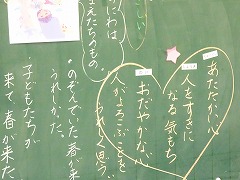 あたたかい心
人をすきに
なる気もち
おだやかな心
人がよろこぶことを
うれしく思う
にわは
たちのもの。
のぞんでいた春が来
うれしかった。
子どもたちが
来て、春が来た。